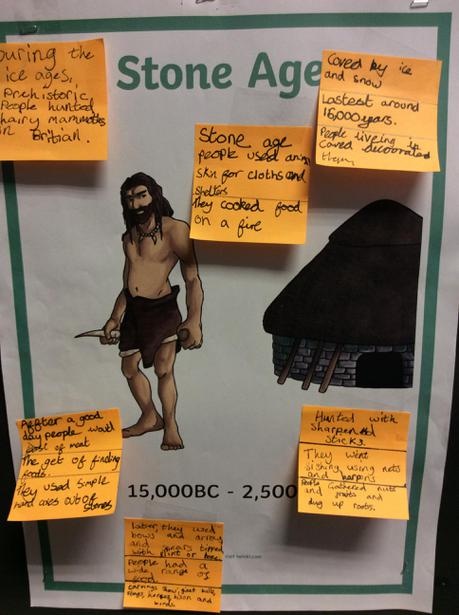 Stone Age
During the
ice ages,
Prehistoric
People hunted
hairy mammoths
in Britian.
Coved by ice
and snow
Lastest around
15,000years.
People liveing in
Caved decorated
them
Stone age
people used anim
skin for cloths and
shelters
They cooked food
on a fire
After a good
day people
feast of meat
The get of finding
foods
They used simple
hand axes out of
stones
Hunted with
Sharpended
Sticks.
They went
fishing using nets
and harpins
People Gathered nuts
and fruits and
dug up roots.
15,000BC - 2,500
later, they used
bows and arrows
and spears tipped
with flint or bone
People had a
wide range of
food